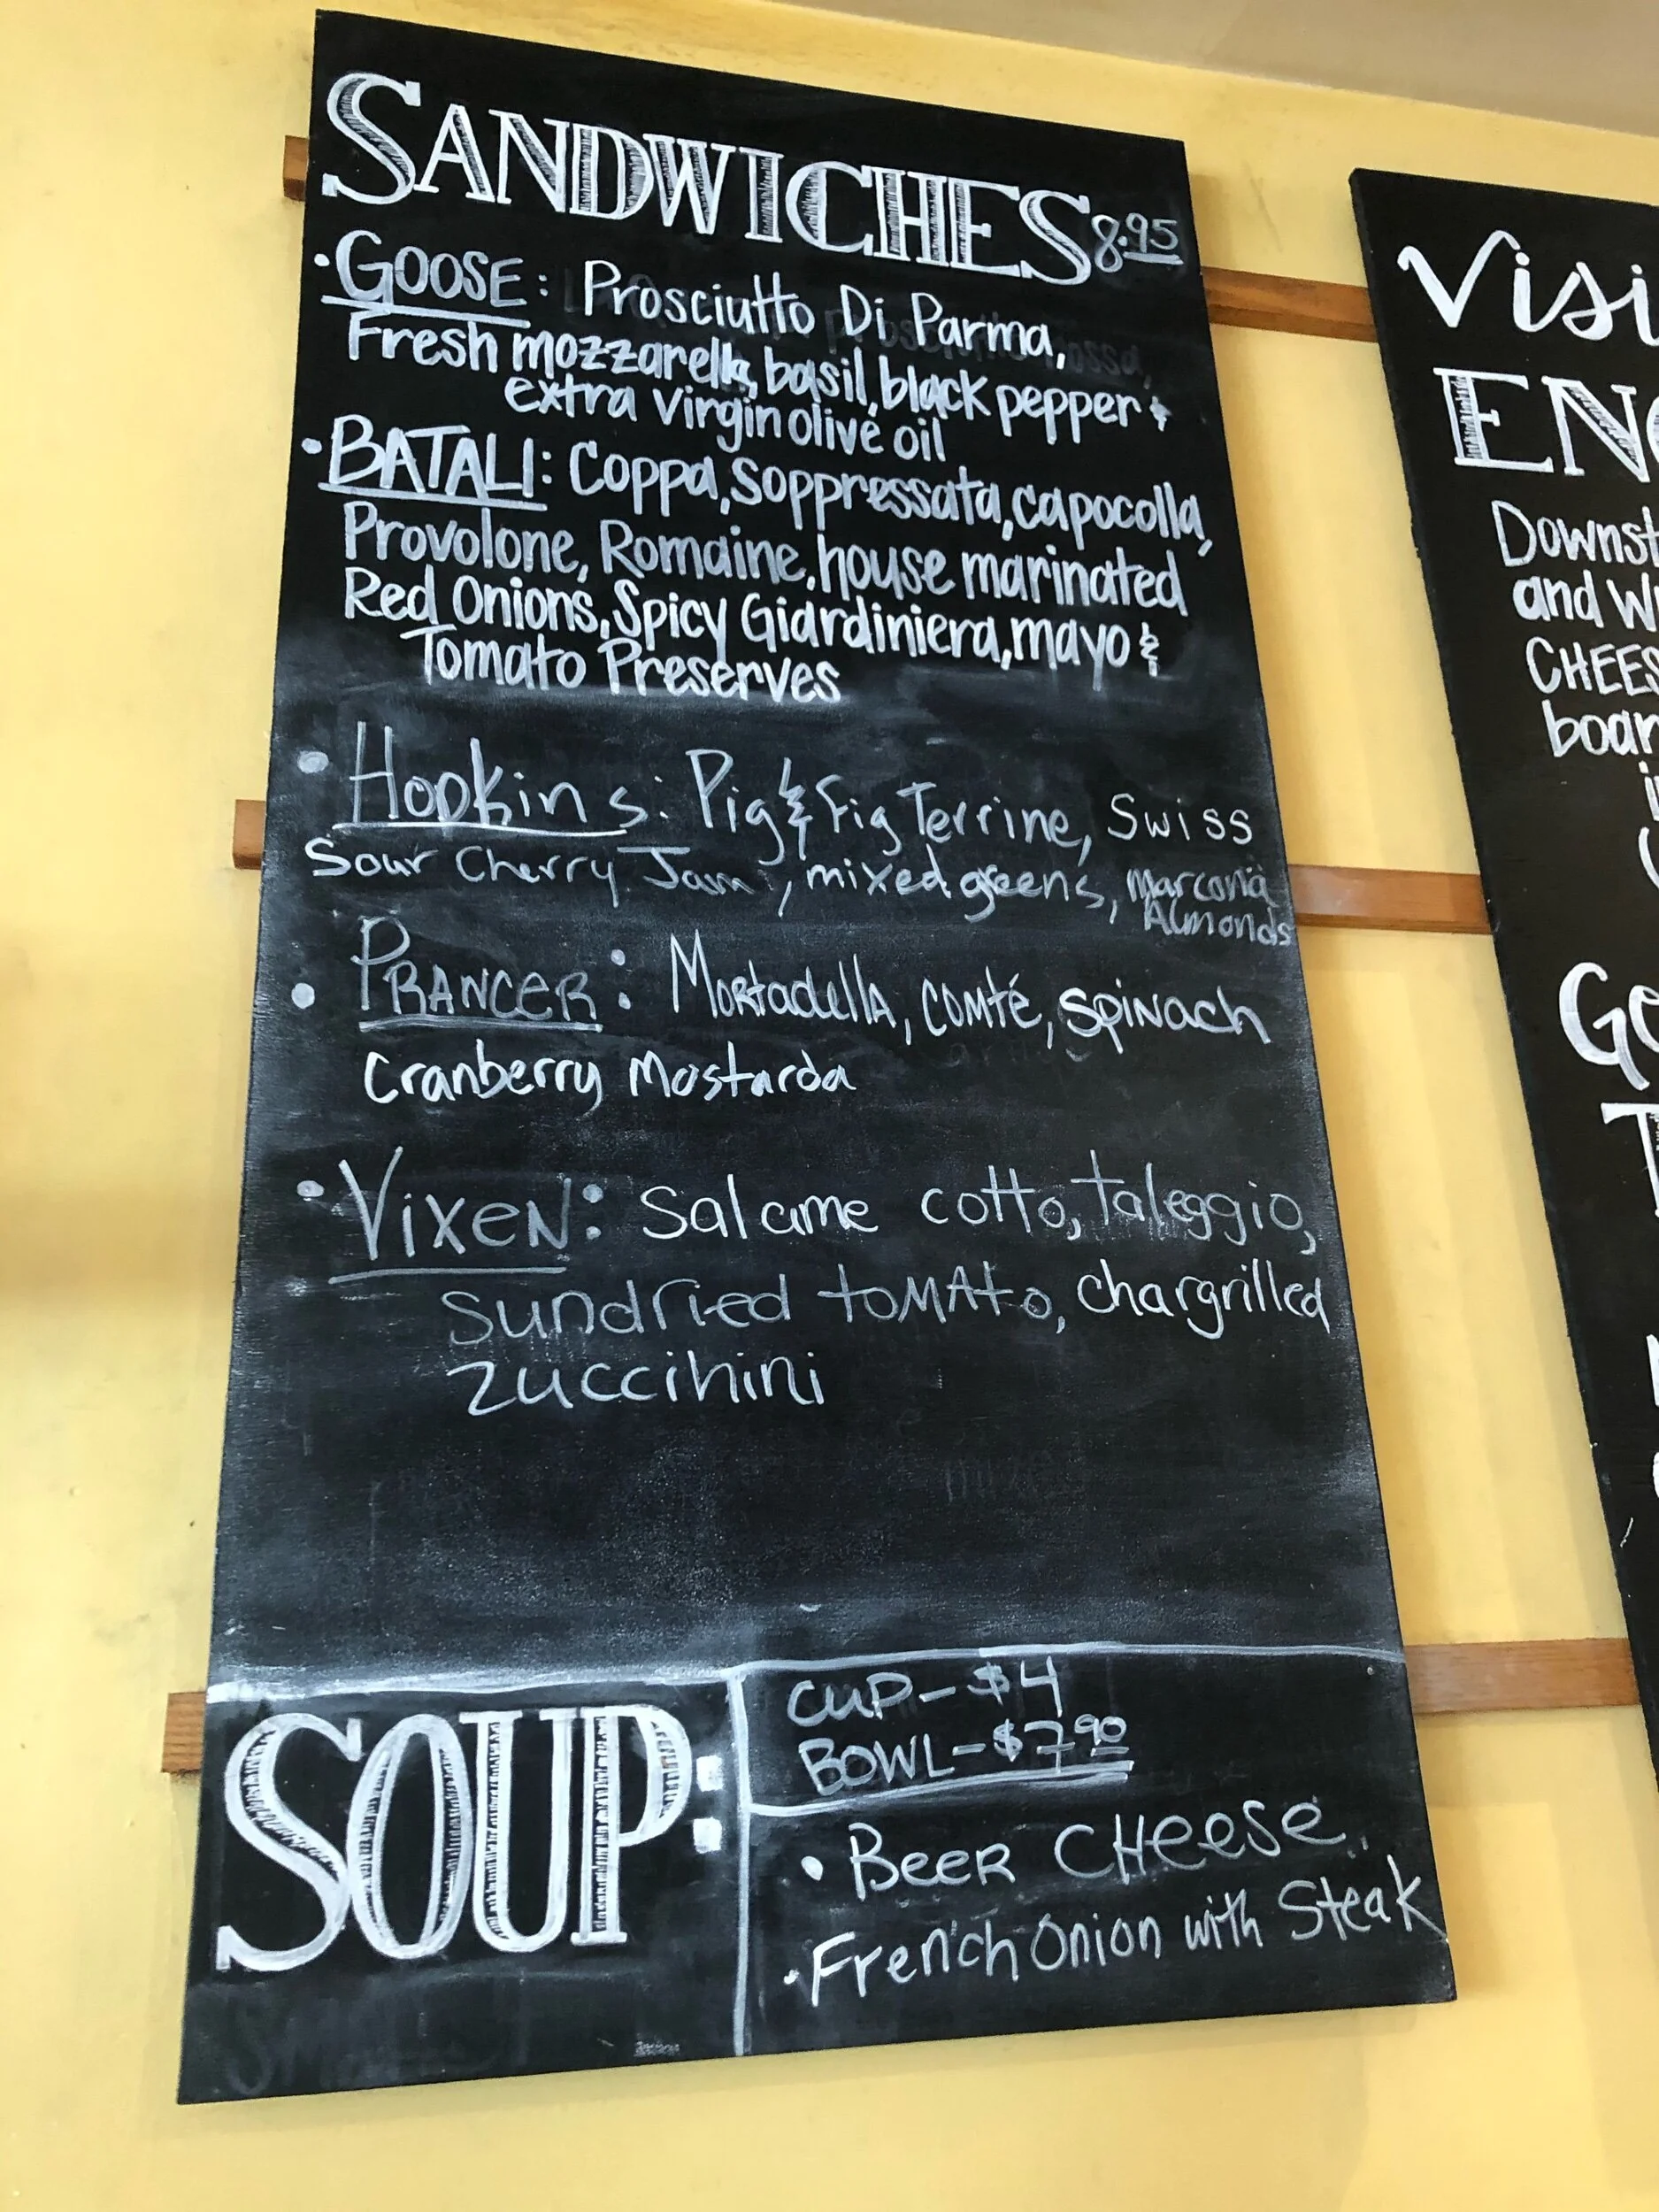 SANDWICHES 8.95
• GOOSE: Prosciutto Di Parma,
Fresh mozzarella, basil, black pepper &
extra virgin olive oil
• BATALI: Coppa, Soppressata, capocolla,
Provolone, Romaine, house marinated
Red Onions, Spicy Giardiniera, mayo &
Tomato Preserves
• Hopkins: Pig & Fig Terrine, Swiss
Sour Cherry Jam, mixed greens, Marcona
Almonds
• PRANCER: Mortadella, Comté, Spinach
Cranberry Mostarda
• VixeN: Salame cotto, taleggio,
Sundried toMAto, chargrilled
zuccihini
SOUP:
CUP - $4
BOWL - $7.90
• BEER CHEESE
• French Onion with Steak
Visi
EN
Downst
and W
CHEES
boar
Ge
T